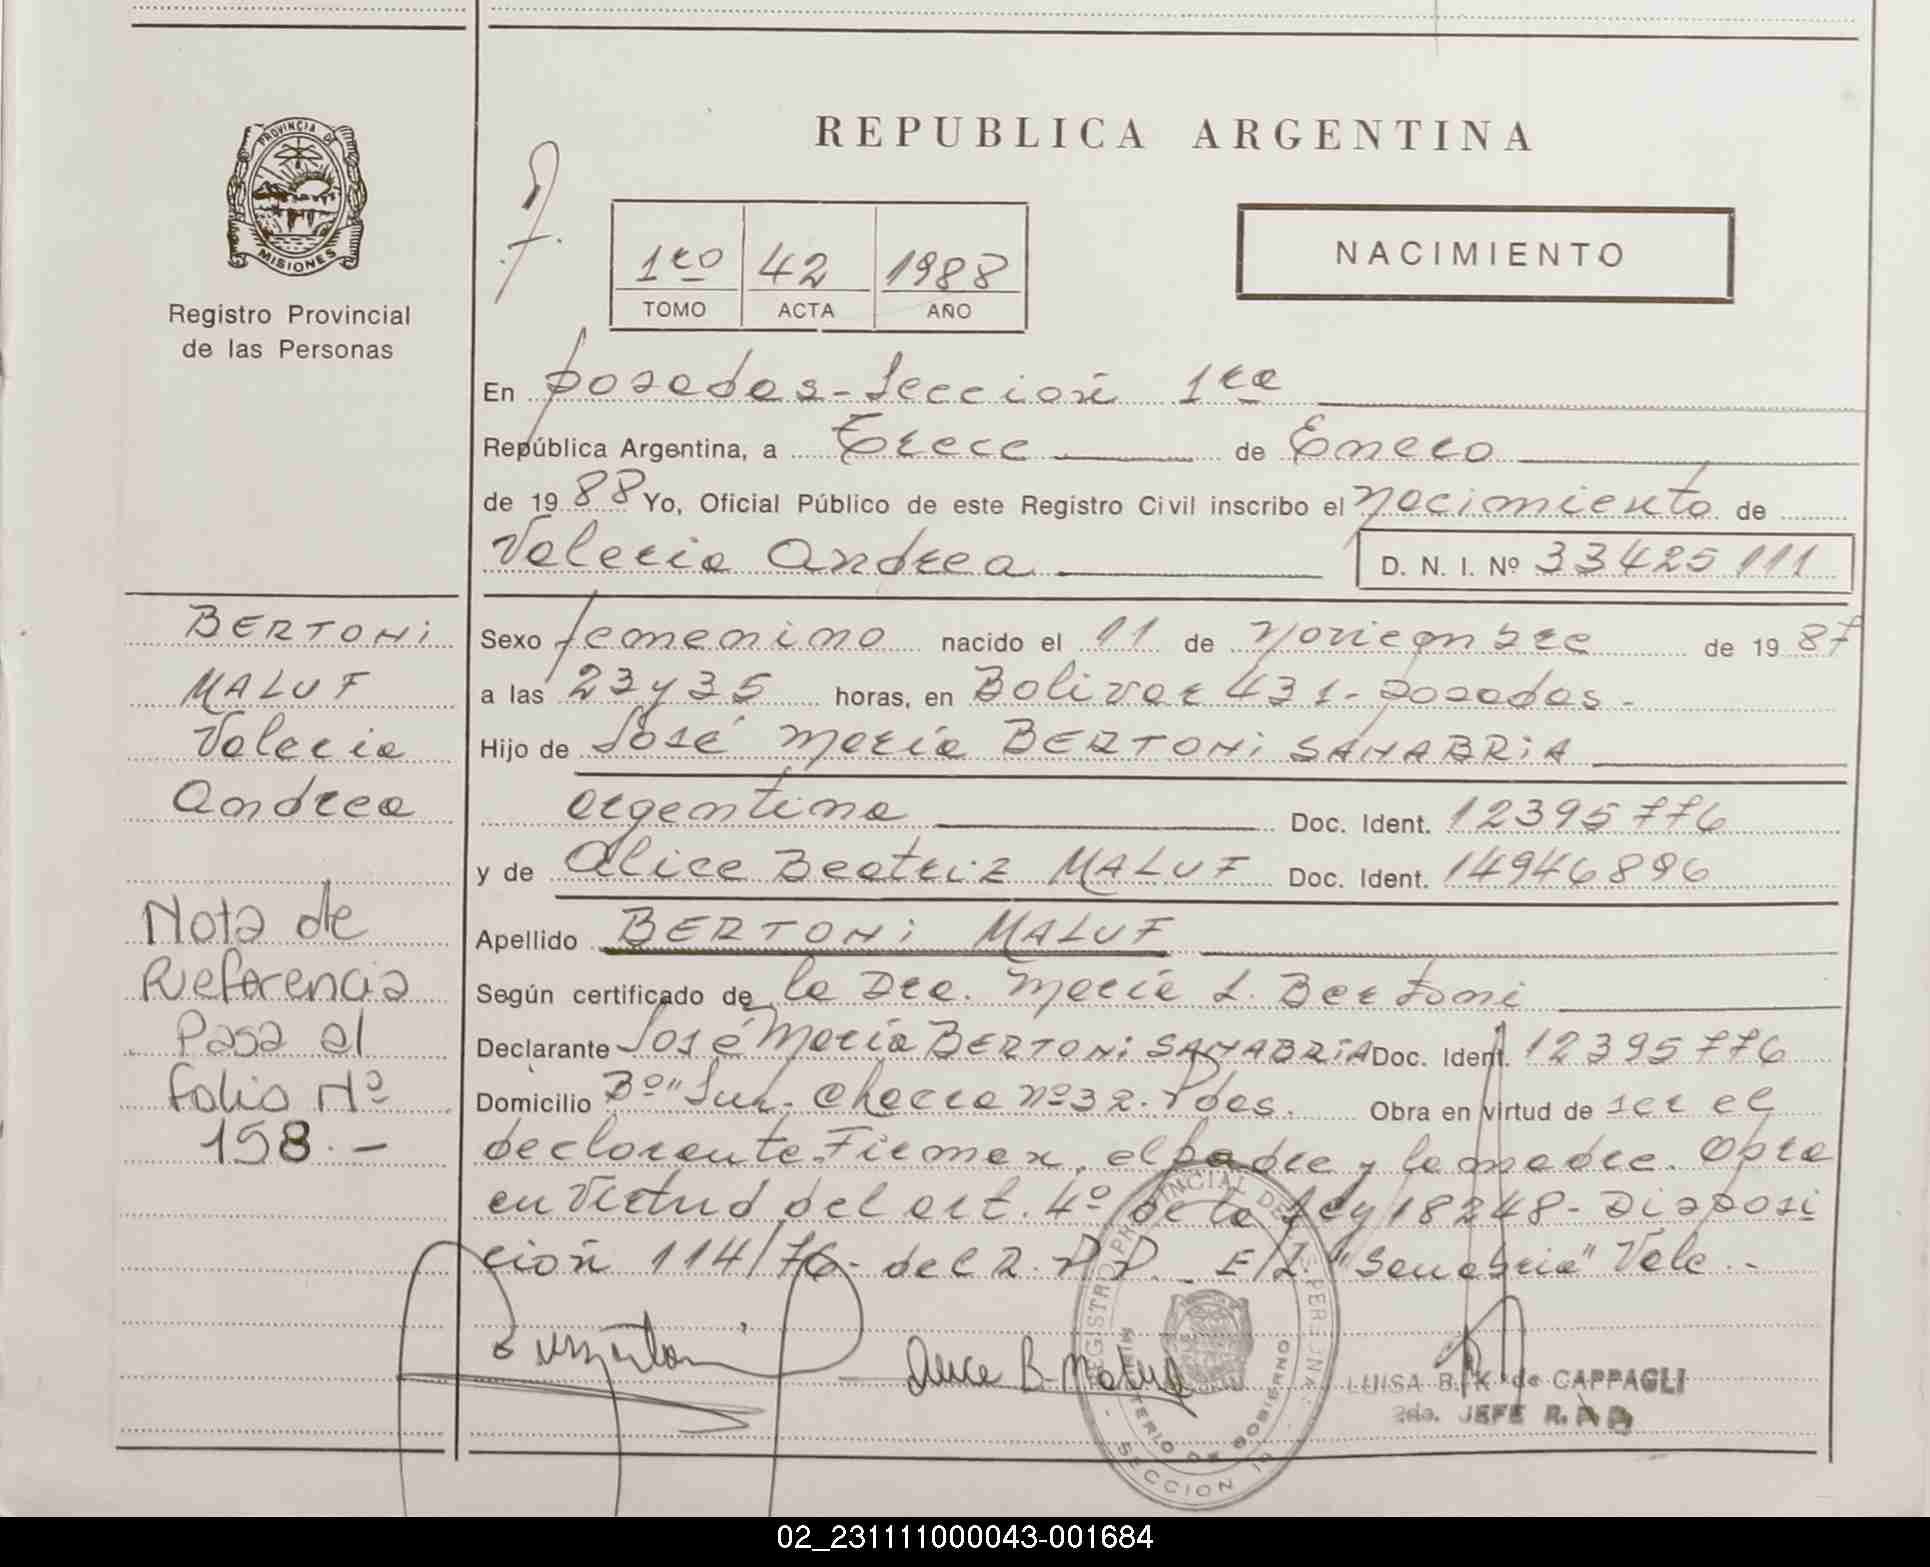 REPUBLICA ARGENTINA
PROVINCIA DE
MISIONES
Registro Provincial
de las Personas
1ro 42 1988
TOMO ACTA AÑO
NACIMIENTO
En posadas - Sección 1ra
República Argentina, a Trece de Enero
de 1988 Yo, Oficial Público de este Registro Civil inscribo el nacimiento de
Valeria Andrea D. N. I. Nº 33425111
BERTONi
MALUF
Valeria
Andrea
Nota de
Referencia
Pasa al
folio Nº
158.-
Sexo femenino nacido el 11 de noviembre de 1987
a las 23 y 35 horas, en Bolivar 431 - posadas -
Hijo de José María BERTONi SANABRiA
argentina Doc. Ident. 12395776
y de Alice Beatriz MALUF Doc. Ident. 14946896
Apellido BERTONi MALUF
Según certificado de la Dra. María L. Bertoni
Declarante José María BERTONi SANABRiA Doc. Ident. 12395776
Domicilio Bº "Sur. Chacra nº 32. Pdas. Obra en virtud de ser el
declarante. Firman, el padre y la madre. Obra
en virtud del art. 4º de la Ley 18248 - Disposi
ción 114/76 - del R. P. P. - E/L. "Sanabria" Vale. -
Alice B. Maluf
REGISTRO PROVINCIAL DE LAS PERSONAS
MINISTERIO DE GOBIERNO
SECCION 1ª
LUISA B. K. de CAPPAGLI
2da. JEFE R. P. P.
02_231111000043-001684